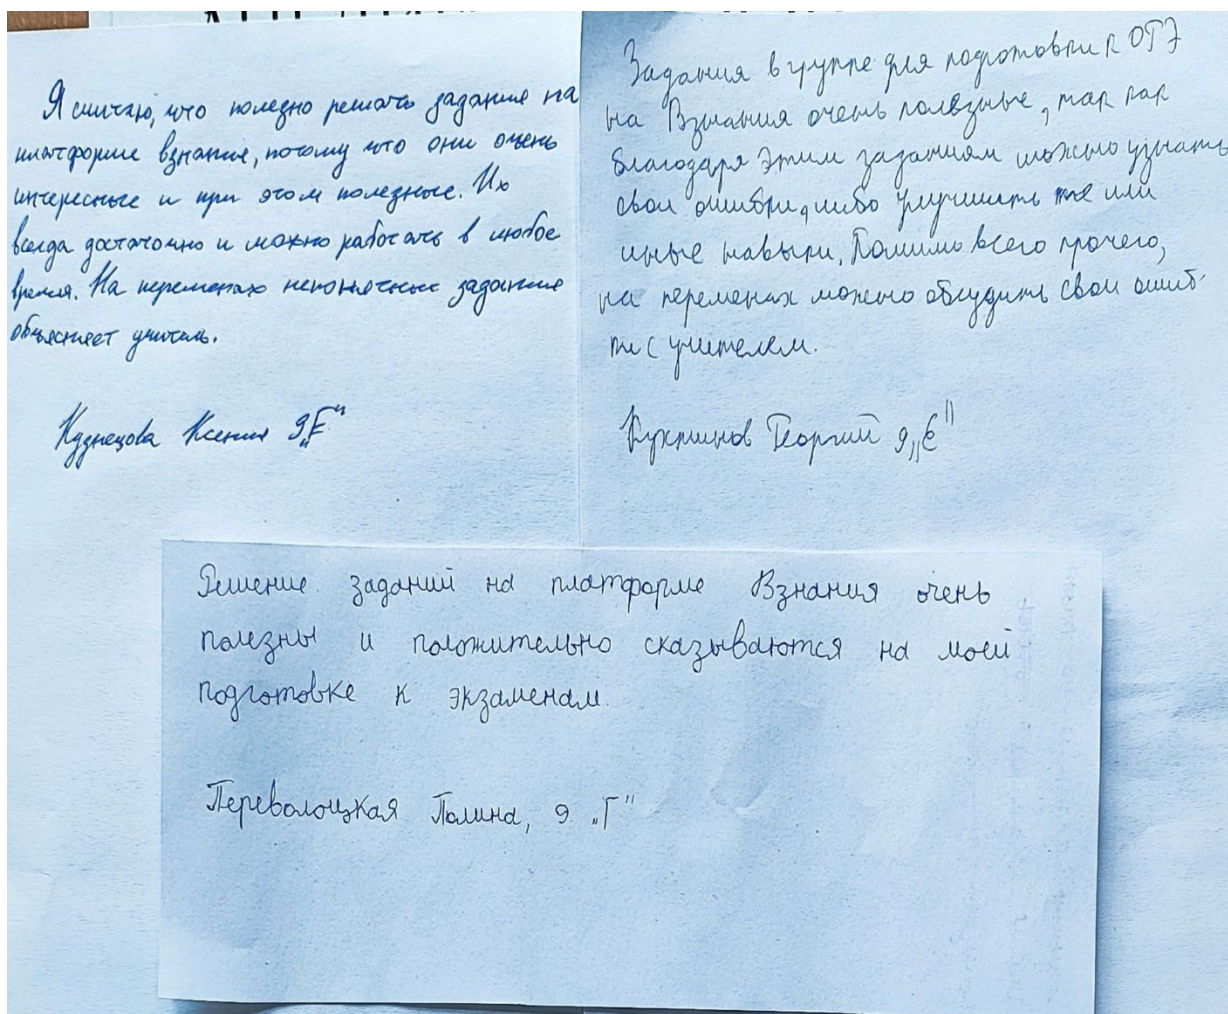 Я считаю, что полезно решать задание на
платформе взнания, потому что они очень
интересные и при этом полезные. Их
всегда достаточно и можно работать в любое
время. На переменах непонятные задание
объясняет учитель.
Кузнецова Ксения 9„Е“
Задания в группе для подготовки к ОГЭ
на Взнания очень полезные, так как
благодаря этим заданиям можно узнать
свои ошибки, либо улучшить те или
иные навыки. Помимо всего прочего,
на переменах можно обсудить свои ошиб-
ки с учителем.
Георгий 9„Е“
Решение заданий на платформе Взнания очень
полезны и положительно сказываются на моей
подготовке к экзаменам.
Переволоцкая Полина, 9 „Г“